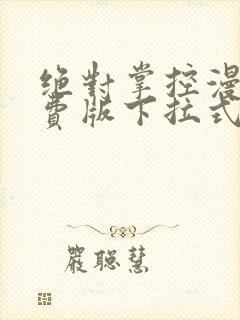 絕對掌控漫
費版下拉式
嚴聰慧